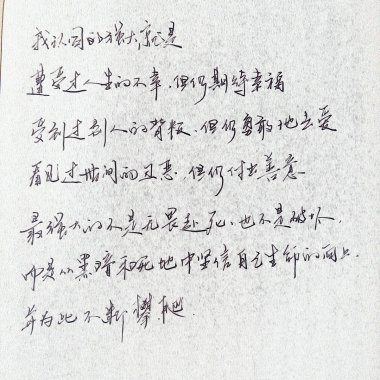 我认同的强大就是
遭受过人生的不幸，但仍期待幸福
受到过别人的背叛，但仍勇敢地去爱
看见过世间的丑恶，但仍付出善意
最强大的不是无畏赴死，也不是破坏，
而是从黑暗和死地中坚信自己生命的
并为此不断攀爬。